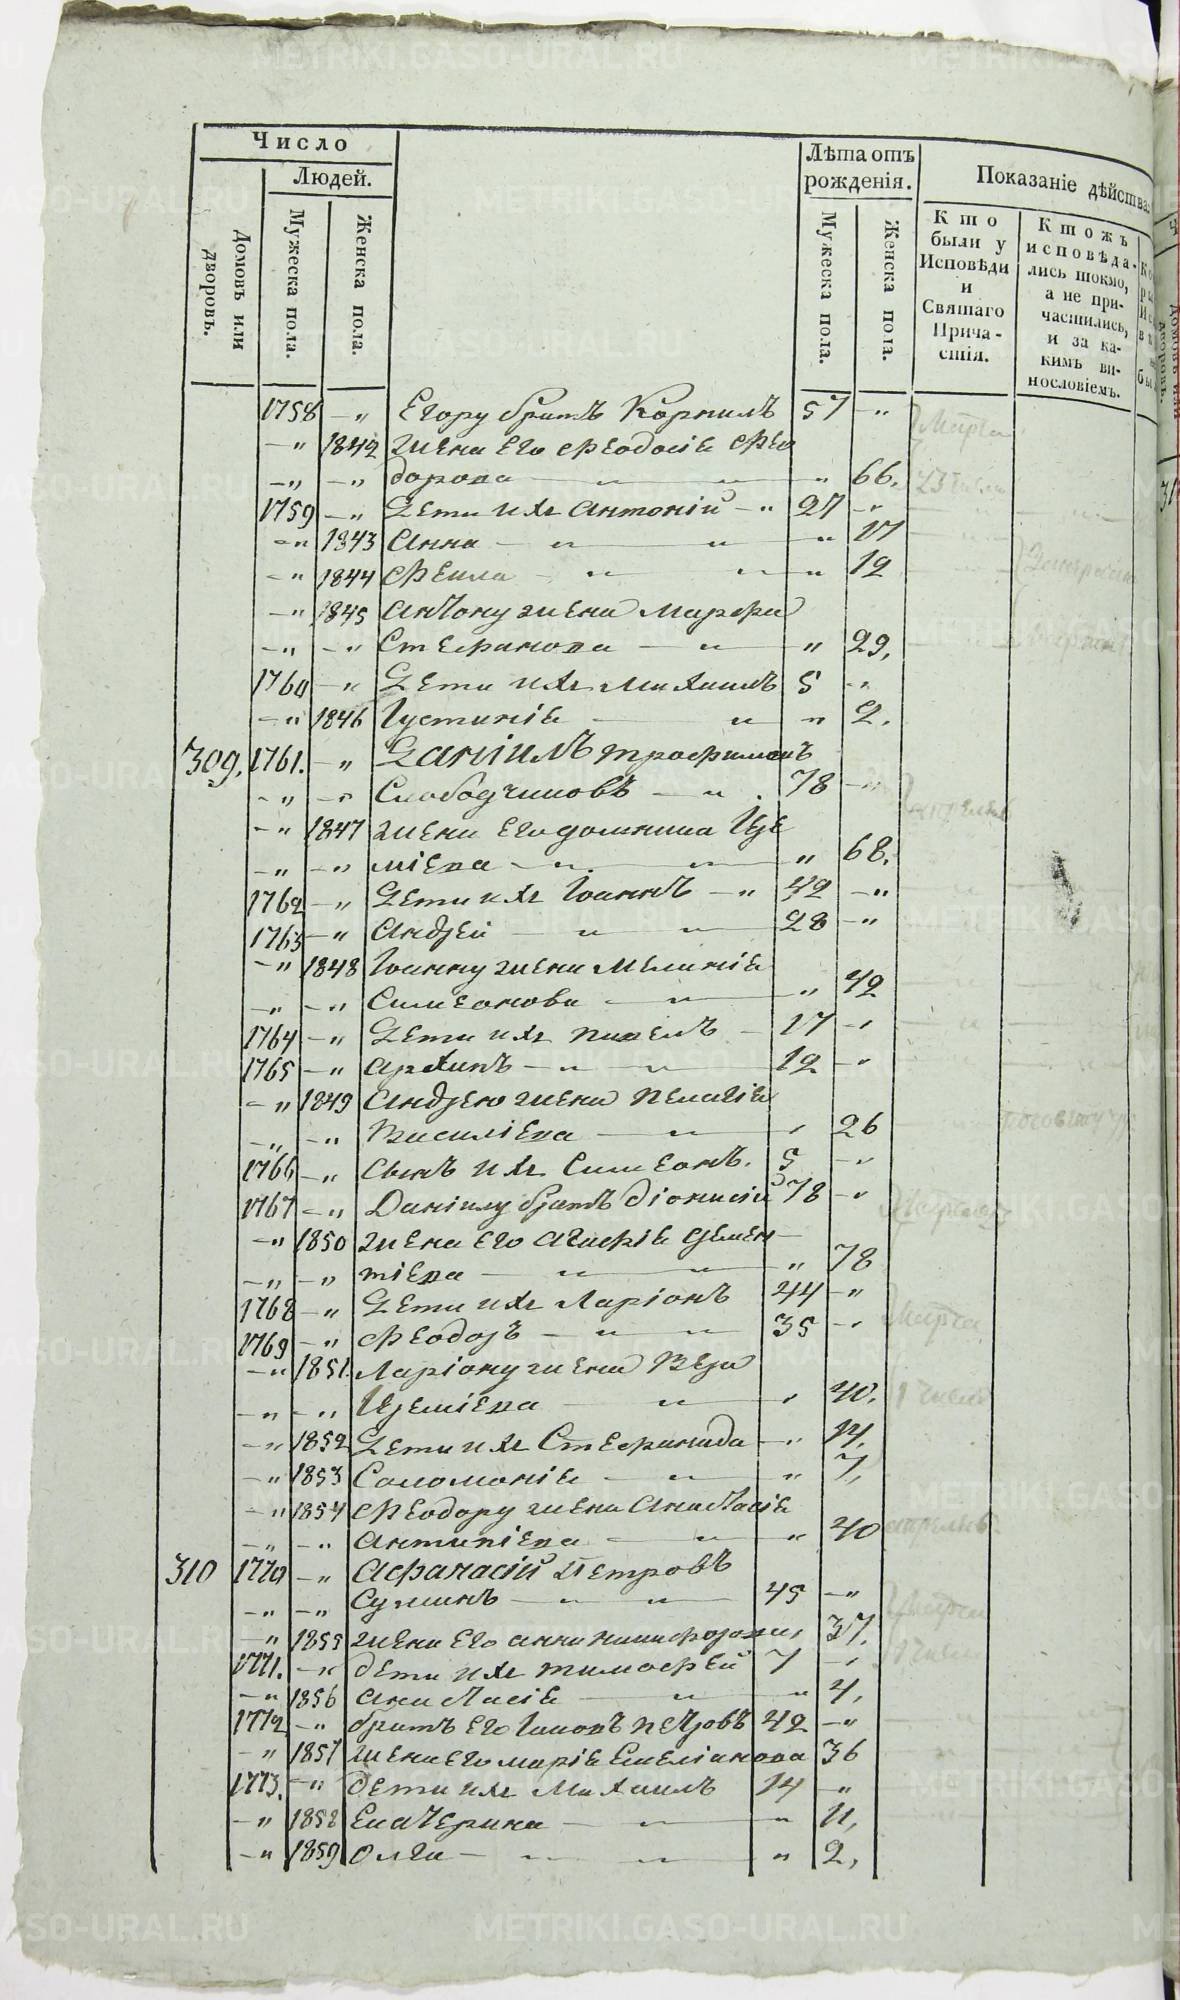 Число
Людей.
Домовъ или дворовъ.
Мужеска пола.
Женска пола.
Лѣта отъ рожденія.
Мужеска пола.
Женска пола.
Показаніе дѣйства
Кто были у Исповѣди и Святаго Причастія.
Ктожъ исповѣдались токмо, а не причастились, и за какимъ винословіемъ.
1758 — „ Егору братъ Корнилъ 57 — „
— „ 1842 жена его Феодосіе Фео
— „ — „ дорова — „ 66.
1759 — „ Дети ихъ Антоній — „ 27 — „
— „ 1843 Анна — „ — „ „ 17
— „ 1844 Фекла — „ — „ „ 12
— „ 1845 Антону жена Марфа
— „ — „ Стефанова — „ „ 29,
1760 — „ Дети ихъ Михаилъ 5 — „
— „ 1846 Іустиніе — „ „ 2.
309. 1761. — „ Даніилъ Трофимовъ
— „ — „ Слободчиковъ — „ 78 — „
— „ 1847 жена его домника Іере
— „ — „ міева — „ — „ „ 68.
1762 — „ Дети ихъ Іоаннъ — „ 42 — „
1763 — „ Андрей — „ — „ 28 — „
— „ 1848 Іоанну жена Меланіе
— „ — „ Симеонова — „ „ 42
1764 — „ Дети ихъ Павелъ — 17 — „
1765 — „ Архипъ — „ — „ 12 — „
— „ 1849 Андрею жена Пелагіе
— „ — „ Василіева — „ „ 26
1766 — „ Сынъ ихъ Симеонъ. 5 — „
1767 — „ Даніилу братъ Діонисій 78 — „
— „ 1850 жена его Агафіе Демен—
— „ — „ тіева — „ — „ „ 78
1768 — „ Дети ихъ Ларіонъ 44 — „
1769 — „ Феодоръ — „ — „ 35 — „
— „ 1851. Ларіону жена Вера
— „ — „ Іереміева — „ „ 40.
— „ 1852 Дети ихъ Стефанида — „ 14,
— „ 1853 Соломоніе — „ „ 7,
— „ 1854 Феодору жена Анастасіе
— „ — „ Антипіева — „ „ 40
310 1770 — „ Афанасій Петровъ
— „ — „ — „ — „ 45 — „
— „ 1855 жена его анна Никифорова, 37.
1771. — „ дети ихъ Тимофей 7 — „
— „ 1856 Анастасіе — „ „ 4,
1772 — „ братъ его Іаковъ Петровъ 42 — „
— „ 1857 жена его Маріе Емеліанова 36
1773. — „ дети ихъ Михаилъ 14 — „
— „ 1858 Екатерина — „ „ 11,
— „ 1859 Олга — „ — „ „ 2,
Марта
Марта
Марта
METRIKI.GASO-URAL.RU